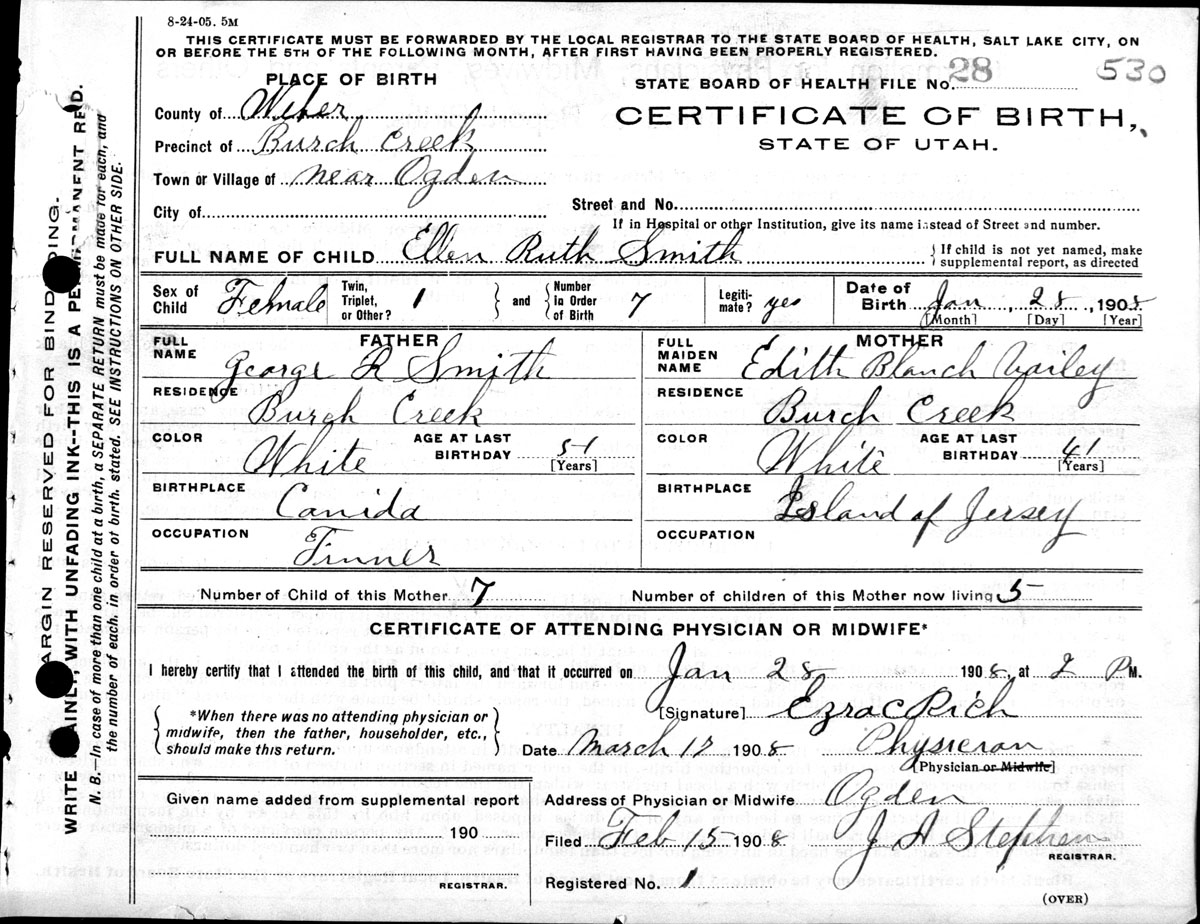 8-24-05. 5M
THIS CERTIFICATE MUST BE FORWARDED BY THE LOCAL REGISTRAR TO THE STATE BOARD OF HEALTH, SALT LAKE CITY, ON
OR BEFORE THE 5TH OF THE FOLLOWING MONTH, AFTER FIRST HAVING BEEN PROPERLY REGISTERED.
PLACE OF BIRTH
STATE BOARD OF HEALTH FILE No. 28 530
County of Weber
CERTIFICATE OF BIRTH,
Precinct of Burch Creek
STATE OF UTAH.
Town or Village of near Ogden
City of
Street and No.
If in Hospital or other Institution, give its name instead of Street and number.
FULL NAME OF CHILD Ellen Ruth Smith { If child is not yet named, make supplemental report, as directed
Sex of Child Female Twin, Triplet, or Other? 1 } and { Number In Order of Birth 7 Legitimate? yes Date of Birth Jan, 28, 1908
[Month] [Day] [Year]
FATHER
FULL NAME George R Smith
RESIDENCE Burch Creek
COLOR White AGE AT LAST BIRTHDAY 51 [Years]
BIRTHPLACE Canida
OCCUPATION Tinner
MOTHER
FULL MAIDEN NAME Edith Blanch
RESIDENCE Burch Creek
COLOR White AGE AT LAST BIRTHDAY 41 [Years]
BIRTHPLACE Island of Jersey
OCCUPATION
Number of Child of this Mother 7 Number of children of this Mother now living 5
CERTIFICATE OF ATTENDING PHYSICIAN OR MIDWIFE*
I hereby certify that I attended the birth of this child, and that it occurred on Jan 28 1908, at 2 PM.
{ *When there was no attending physician or midwife, then the father, householder, etc., should make this return. }
[Signature] Ezra C Rich
Date March 1908 Physician
[Physician or Midwife]
Given name added from supplemental report
190
REGISTRAR.
Address of Physician or Midwife Ogden
Filed Feb 15 1908 J A Stephen
REGISTRAR.
Registered No. 1
(OVER)
ARGIN RESERVED FOR BINDING.
WRITE PLAINLY, WITH UNFADING INK--THIS IS A PERMANENT
N. B.--In case of more than one child at a birth, a SEPARATE RETURN must be made for each, and
the number of each. in order of birth. stated. SEE INSTRUCTIONS ON OTHER SIDE.